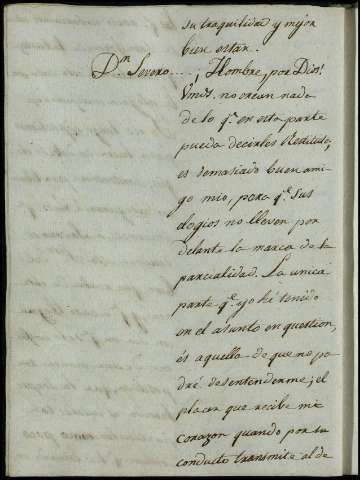 su traquilidad y mejor
bien estar.
Dn Severo.... ¡Hombre, por Dios!
Vmds. no crean nada
de lo qe. en esta parte
pueda decirles Restituto,
es demasiado buen ami-
go mio, para qe. sus
elogios no lleven por
delante la marca de la
parcialidad. La unica
parte qe. yo hé tenido
en el asunto en question,
es aquella de que no po-
dré desentenderme; el
placer que recibe mi
corazon quando por su
conducto transmite al de